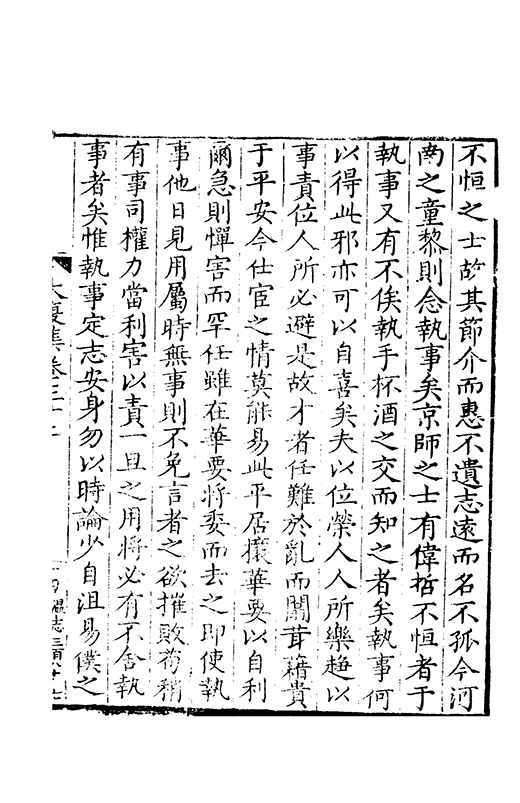 不恒之士故其節介而惠不遺志遠而名不孤今河
南之童黎則念執事矣京師之士有偉哲不恒者于
執事又有不俟執手杯酒之交而知之者矣執事何
以得此邪亦可以自喜矣夫以位榮人人所樂趨以
事責位人所必避是故才者任難於亂而闒茸藉貴
于平安今仕宦之情莫能易此平居攘華要以自利
爾急則憚害而罕任雖在華要將委而去之即使執
事他日見用屬時無事則不免言者之欲摧敗苟稍
有事司權力當利害以責一旦之用將必有不舍執
事者矣惟執事定志安身勿以時論少自沮易僕之
大復集卷三十二